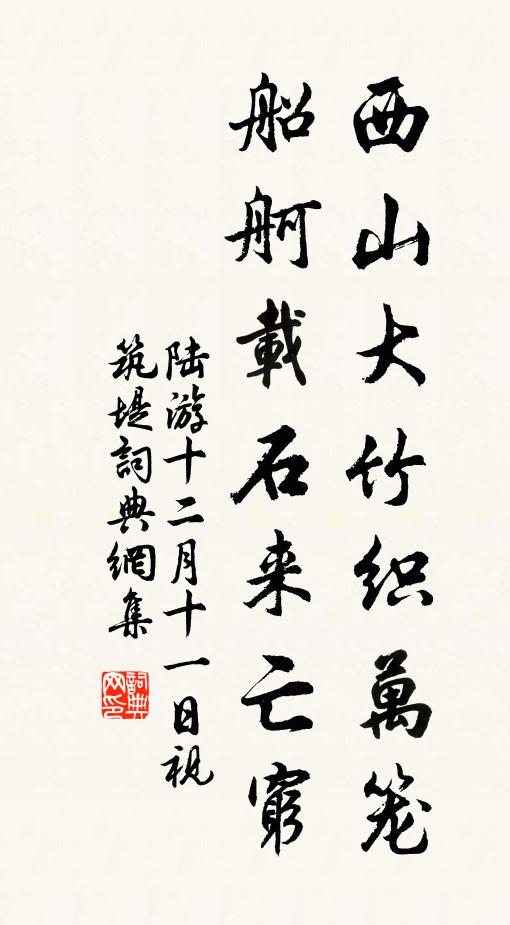 西山大竹织萬笼
船舸載石来亡窮
陆游十二月十一日视
筑堤詞典網集
詞典
网印